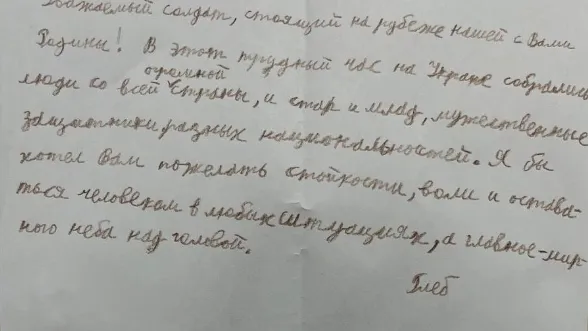 Уважаемый солдат, стоящий на рубеже нашей с Вами
Родины! В этот трудный час на Укране собрались
огромной
люди со всей страны, и стар и млад, мужественные
защитники разных национальностей. Я бы
хотел Вам пожелать стойкости, воли и остава-
ться человеком в любых ситуациях, а главное - мир-
ного неба над головой.
Глеб